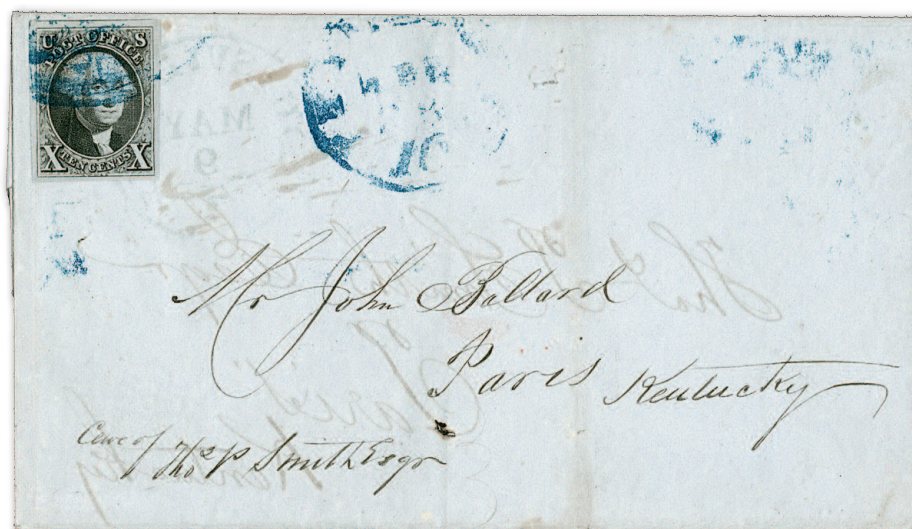 U S
POST OFFICE
X TEN CENTS X
MAY
9
10
Mr John Ballard
Paris Kentucky
Care of
Thos P Smith Esqr